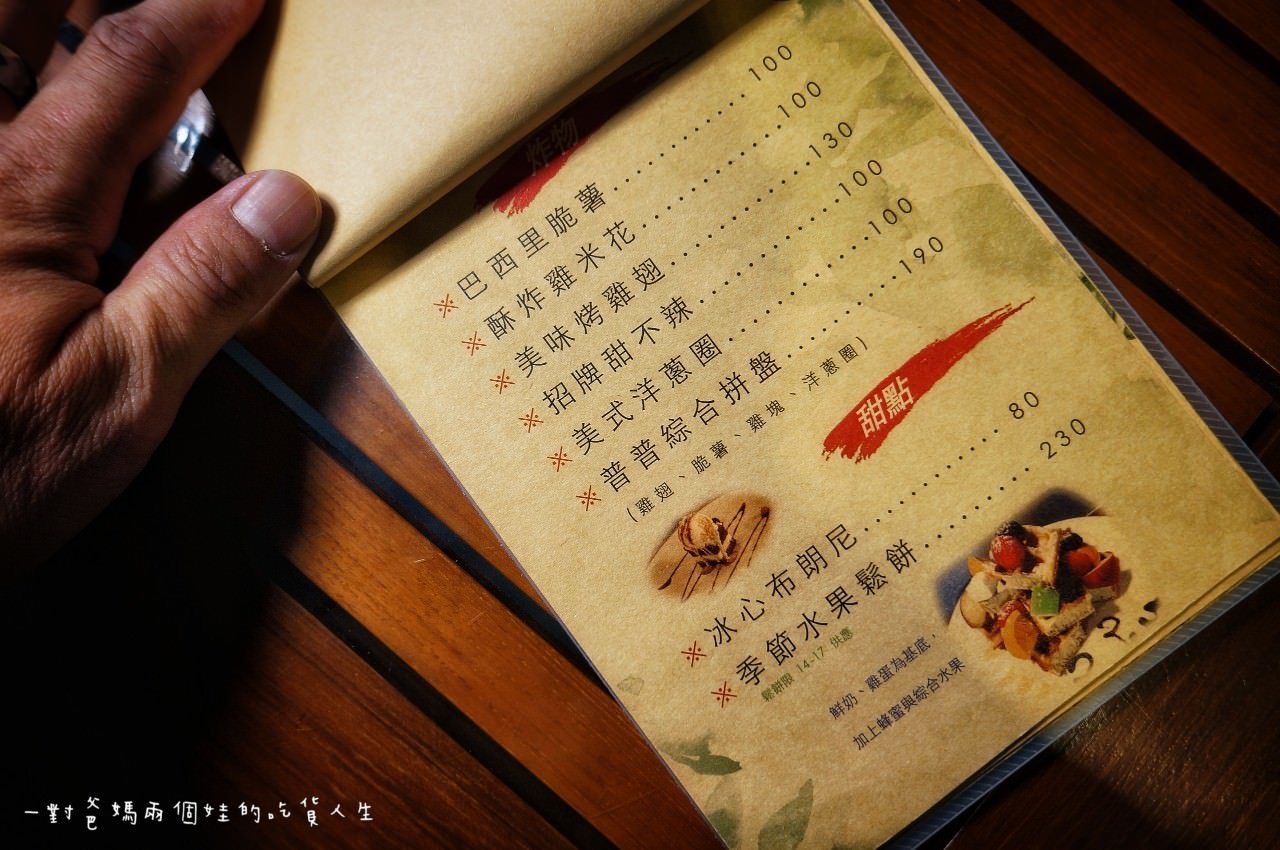 炸物
※巴西里脆薯..............100
※酥炸雞米花..............100
※美味烤雞翅..............130
※招牌甜不辣..............100
※美式洋蔥圈..............100
※普普綜合拼盤............190
(雞翅、脆薯、雞塊、洋蔥圈)
甜點
※冰心布朗尼..............80
※季節水果鬆餅............230
鬆餅限 14-17 供應
鮮奶、雞蛋為基底，
加上蜂蜜與綜合水果
一對爸媽兩個娃的吃貨人生